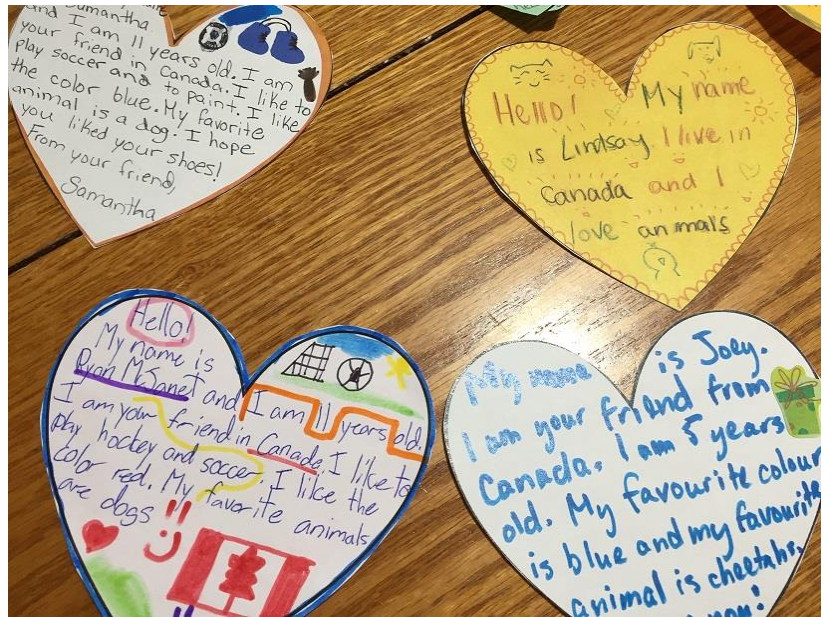 Samantha
and I am 11 years old. I am
your friend in Canada. I like to
play soccer and to paint. I like
the color blue. My favorite
animal is a dog. I hope
you liked your shoes!
From your friend,
Samantha
Hello! My name
is Lindsay I live in
Canada and I
love animals
Hello!
My name is
Ryan and I am 11 years old.
I am your friend in Canada. I like to
play hockey and soccer. I like the
color red. My favorite animals
are dogs !!
My name is Joey.
I am your friend from
Canada. I am 5 years
old. My favourite colour
is blue and my favourite
animal is cheetahs,